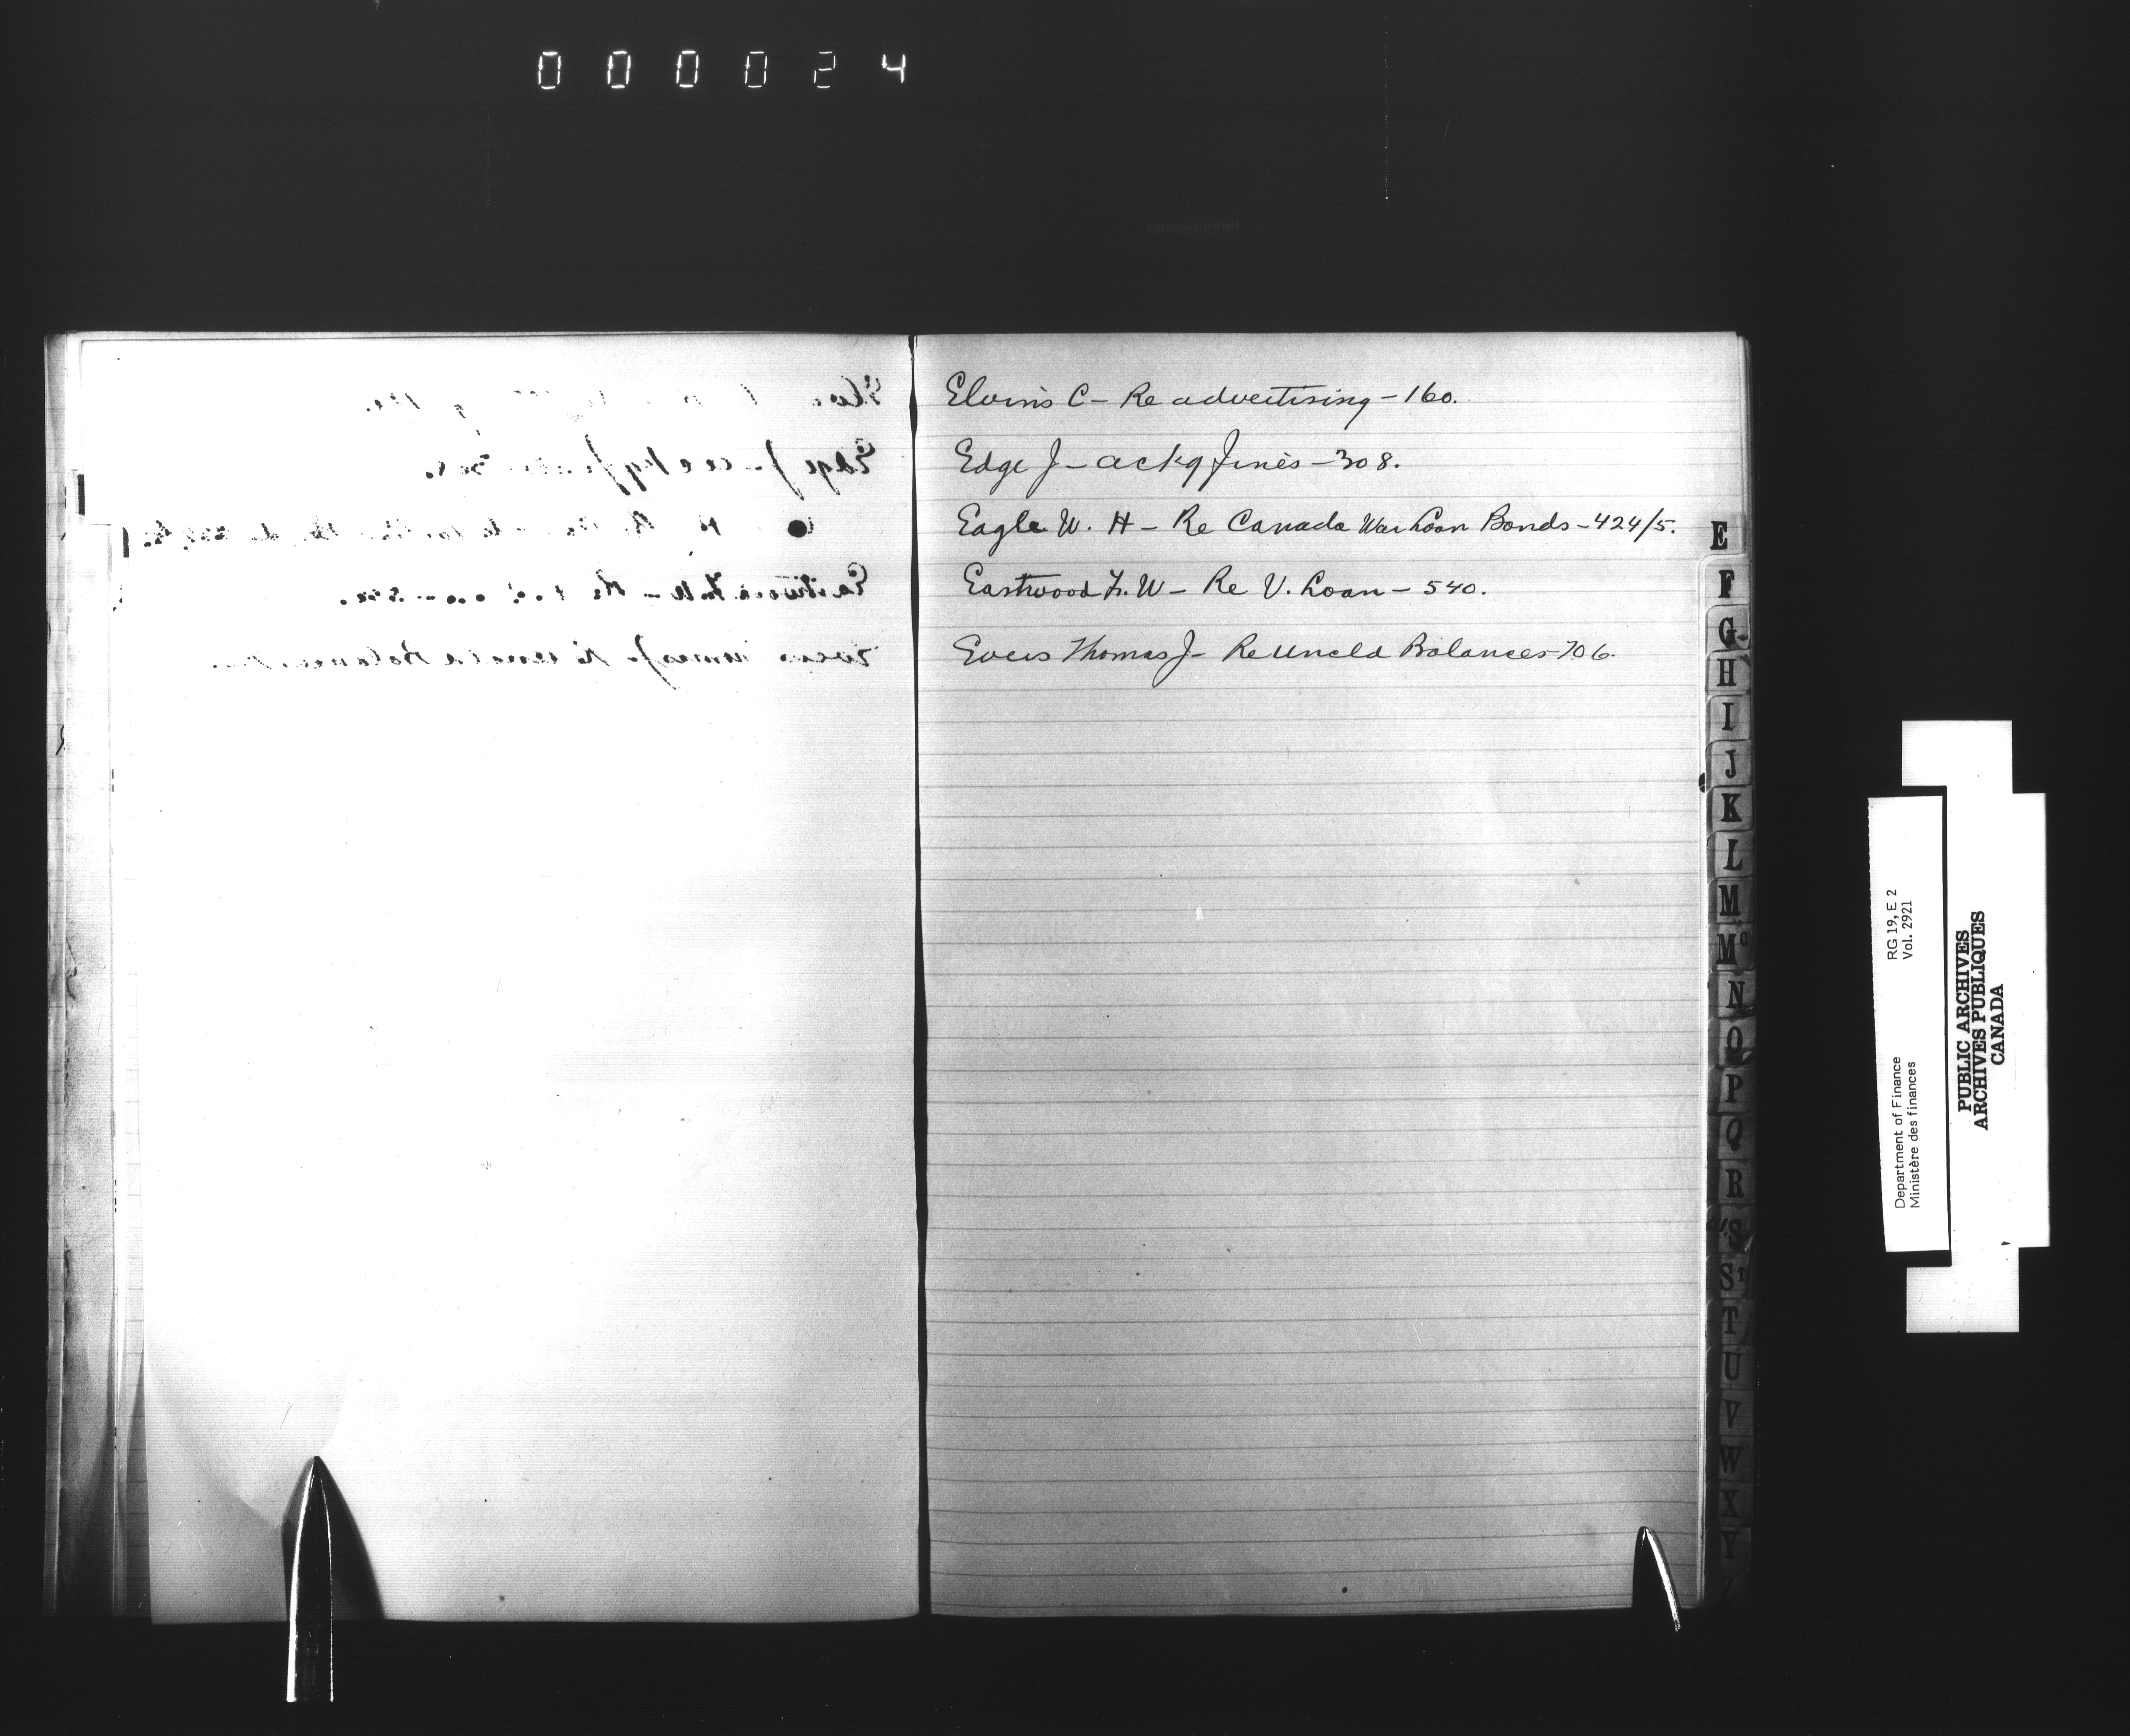 000024
Elvins C - Re advertising - 160.
Edge J - ackg Jines - 308.
Eagle W. H - Re Canada War Loan Bonds - 424/5.
Eastwood F. W - Re V. Loan - 540.
Evers Thomas J - Re Uncld Balances - 706.
E
F
G
H
I
J
K
L
M
Mc
N
O
P
Q
R
S
St
T
U
V
W
X
Y
Z
Department of Finance RG 19, E 2
Ministère des finances Vol. 2921
PUBLIC ARCHIVES
ARCHIVES PUBLIQUES
CANADA